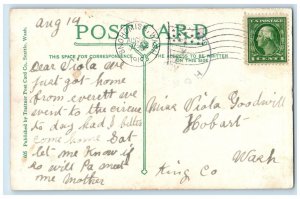 Aug 19
POST CARD
THIS SPACE FOR CORRESPONDENCE
THE ADDRESS
ON THIS SIDE
U.S. POSTAGE
1 CENT 1
Published by Thatcher Post Card Co., Seattle, Wash.
Dear Viola we
just got home
from everett we
went to the circus
to day had I better
come home Sat
let me Know if
so will Pa meet
me Mother
Miss Viola Goodwill
Hobart
King Co
Wash